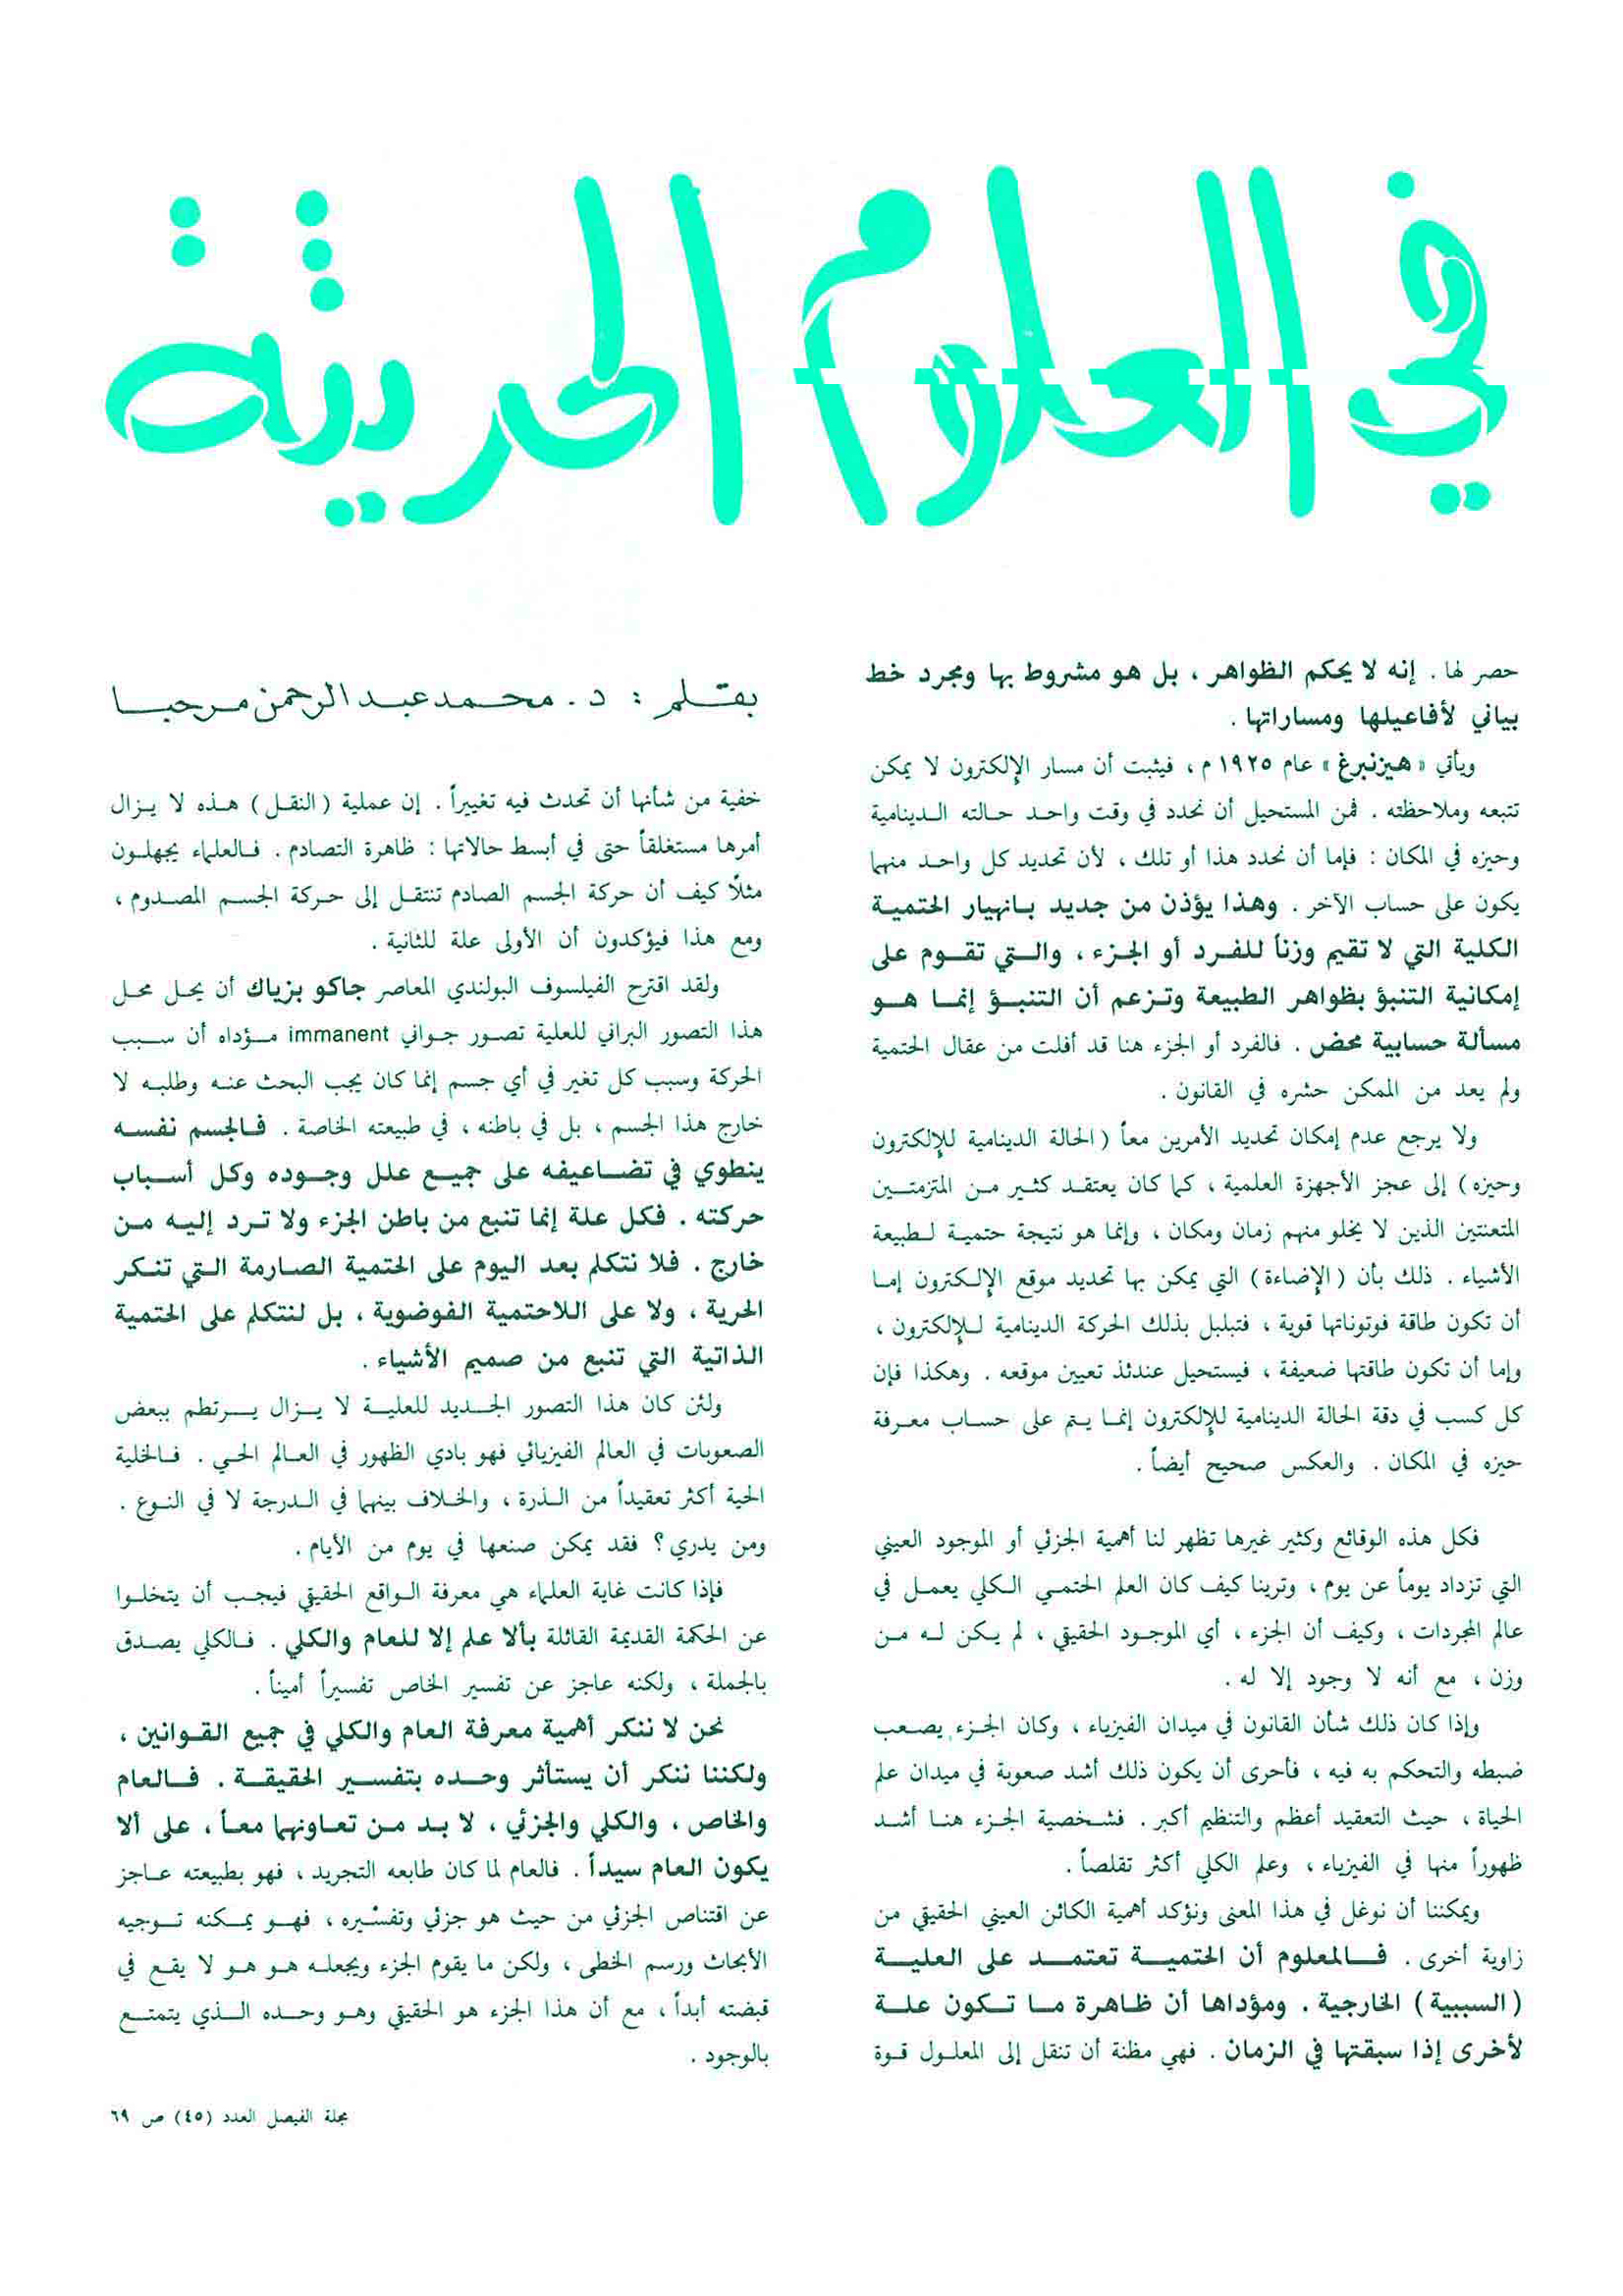 في العلوم الحديثة
حصر لها . إنه لا يحكم الظواهر ، بل هو مشروط بها ومجرد خط
بياني لأفاعيلها ومساراتها .
ويأتي « هيزنبرغ » عام ١٩٢٥ م ، فيثبت أن مسار الإلكترون لا يمكن
تتبعه وملاحظته . فمن المستحيل أن نحدد في وقت واحد حالته الدينامية
وحيزه في المكان : فإما أن نحدد هذا أو تلك ، لأن تحديد كل واحد منهما
يكون على حساب الآخر . وهذا يؤذن من جديد بانهيار الحتمية
الكلية التي لا تقيم وزناً للفرد أو الجزء ، والتي تقوم على
إمكانية التنبؤ بظواهر الطبيعة وتزعم أن التنبؤ إنما هو
مسألة حسابية محض . فالفرد أو الجزء هنا قد أفلت من عقال الحتمية
ولم يعد من الممكن حشره في القانون .
ولا يرجع عدم إمكان تحديد الأمرين معاً ( الحالة الدينامية للإلكترون
وحيزه ) إلى عجز الأجهزة العلمية ، كما كان يعتقد كثير من المتزمتين
المتعنتين الذين لا يخلو منهم زمان ومكان ، وإنما هو نتيجة حتمية لطبيعة
الأشياء . ذلك بأن ( الإضاءة ) التي يمكن بها تحديد موقع الإلكترون إما
أن تكون طاقة فوتوناتها قوية ، فتبلبل بذلك الحركة الدينامية للإلكترون ،
وإما أن تكون طاقتها ضعيفة ، فيستحيل عندئذ تعيين موقعه . وهكذا فإن
كل كسب في دقة الحالة الدينامية للإلكترون إنما يتم على حساب معرفة
حيزه في المكان . والعكس صحيح أيضاً .
فكل هذه الوقائع وكثير غيرها تظهر لنا أهمية الجزئي أو الموجود العيني
التي تزداد يوماً عن يوم ، وترينا كيف كان العلم الحتمي الكلي يعمل في
عالم المجردات ، وكيف أن الجزء ، أي الموجود الحقيقي ، لم يكن له من
وزن ، مع أنه لا وجود إلا له .
وإذا كان ذلك شأن القانون في ميدان الفيزياء ، وكان الجزء يصعب
ضبطه والتحكم به فيه ، فأحرى أن يكون ذلك أشد صعوبة في ميدان علم
الحياة ، حيث التعقيد أعظم والتنظيم أكبر . فشخصية الجزء هنا أشد
ظهوراً منها في الفيزياء ، وعلم الكلي أكثر تقلصاً .
ويمكننا أن نوغل في هذا المعنى ونؤكد أهمية الكائن العيني الحقيقي من
زاوية أخرى . فالمعلوم أن الحتمية تعتمد على العلية
( السببية ) الخارجية . ومؤداها أن ظاهرة ما تكون علة
لأخرى إذا سبقتها في الزمان . فهي مظنة أن تنقل إلى المعلول قوة
بقلم : د . محمد عبد الرحمن مرحبا
خفية من شأنها أن تحدث فيه تغييراً . إن عملية ( النقل ) هذه لا يزال
أمرها مستغلقاً حتى في أبسط حالاتها : ظاهرة التصادم . فالعلماء يجهلون
مثلاً كيف أن حركة الجسم الصادم تنتقل إلى حركة الجسم المصدوم ،
ومع هذا فيؤكدون أن الأولى علة للثانية .
ولقد اقترح الفيلسوف البولندي المعاصر جاكو بزياك أن يحل محل
هذا التصور البراني للعلية تصور جواني immanent مؤداه أن سبب
الحركة وسبب كل تغير في أي جسم إنما كان يجب البحث عنه وطلبه لا
خارج هذا الجسم ، بل في باطنه ، في طبيعته الخاصة . فالجسم نفسه
ينطوي في تضاعيفه على جميع علل وجوده وكل أسباب
حركته . فكل علة إنما تنبع من باطن الجزء ولا ترد إليه من
خارج . فلا نتكلم بعد اليوم على الحتمية الصارمة التي تنكر
الحرية ، ولا على اللاحتمية الفوضوية ، بل لنتكلم على الحتمية
الذاتية التي تنبع من صميم الأشياء .
ولئن كان هذا التصور الجديد للعلية لا يزال يرتطم ببعض
الصعوبات في العالم الفيزيائي فهو بادي الظهور في العالم الحي . فالخلية
الحية أكثر تعقيداً من الذرة ، والخلاف بينهما في الدرجة لا في النوع .
ومن يدري ؟ فقد يمكن صنعها في يوم من الأيام .
فإذا كانت غاية العلماء هي معرفة الواقع الحقيقي فيجب أن يتخلوا
عن الحكمة القديمة القائلة بألا علم إلا للعام والكلي . فالكلي يصدق
بالجملة ، ولكنه عاجز عن تفسير الخاص تفسيراً أميناً .
نحن لا ننكر أهمية معرفة العام والكلي في جميع القوانين ،
ولكننا ننكر أن يستأثر وحده بتفسير الحقيقة . فالعام
والخاص ، والكلي والجزئي ، لا بد من تعاونهما معاً ، على ألا
يكون العام سيداً . فالعام لما كان طابعه التجريد ، فهو بطبيعته عاجز
عن اقتناص الجزئي من حيث هو جزئي وتفسيره ، فهو يمكنه توجيه
الأبحاث ورسم الخطى ، ولكن ما يقوم الجزء ويجعله هو هو لا يقع في
قبضته أبداً ، مع أن هذا الجزء هو الحقيقي وهو وحده الذي يتمتع
بالوجود .
مجلة الفيصل العدد (٤٥) ص ٦٩